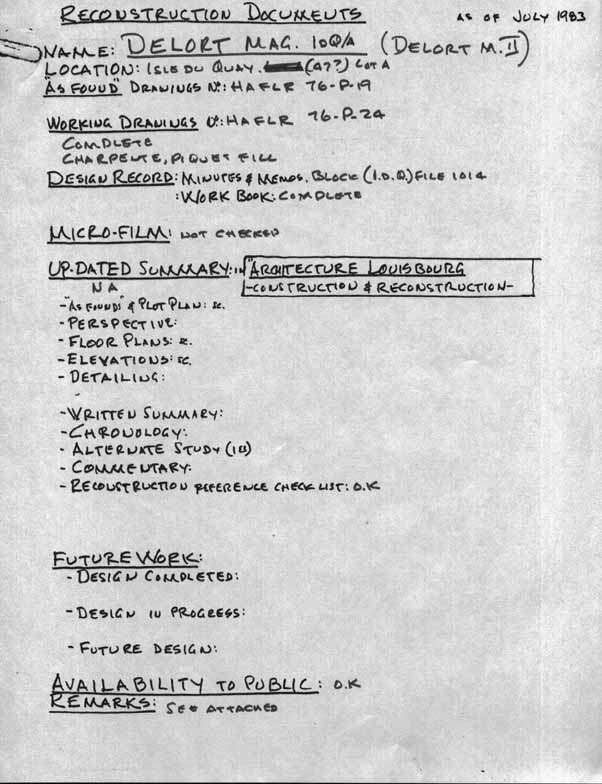 RECONSTRUCTION DOCUMENTS AS OF JULY 1983
NAME: DELORT MAG. IDQ/A (DELORT M. II)
LOCATION: ISLE DU QUAY. (4??) LOT A
"AS FOUND" DRAWINGS No: HAFLR 76-P-19
WORKING DRAWINGS No: HAFLR 76-P-24
COMPLETE
CHARPENTE, PIQUET FILL
DESIGN RECORD: MINUTES & MEMOS, BLOCK (I.D.Q.) FILE 1014
: WORK BOOK: COMPLETE
MICRO-FILM: NOT CHECKED
UP-DATED SUMMARY: IN "ARCHITECTURE LOUISBOURG
NA -CONSTRUCTION & RECONSTRUCTION-
- "AS FOUNDS" & PLOT PLAN: SC.
- PERSPECTIVE:
- FLOOR PLANS: SC.
- ELEVATIONS: SC.
- DETAILING:
- WRITTEN SUMMARY:
- CHRONOLOGY:
- ALTERNATE STUDY (IB)
- COMMENTARY:
- RECONSTRUCTION REFERENCE CHECK LIST: O.K
FUTURE WORK:
- DESIGN COMPLETED:
- DESIGN IN PROGRESS:
- FUTURE DESIGN:
AVAILABILITY TO PUBLIC: O.K
REMARKS: SEE ATTACHED